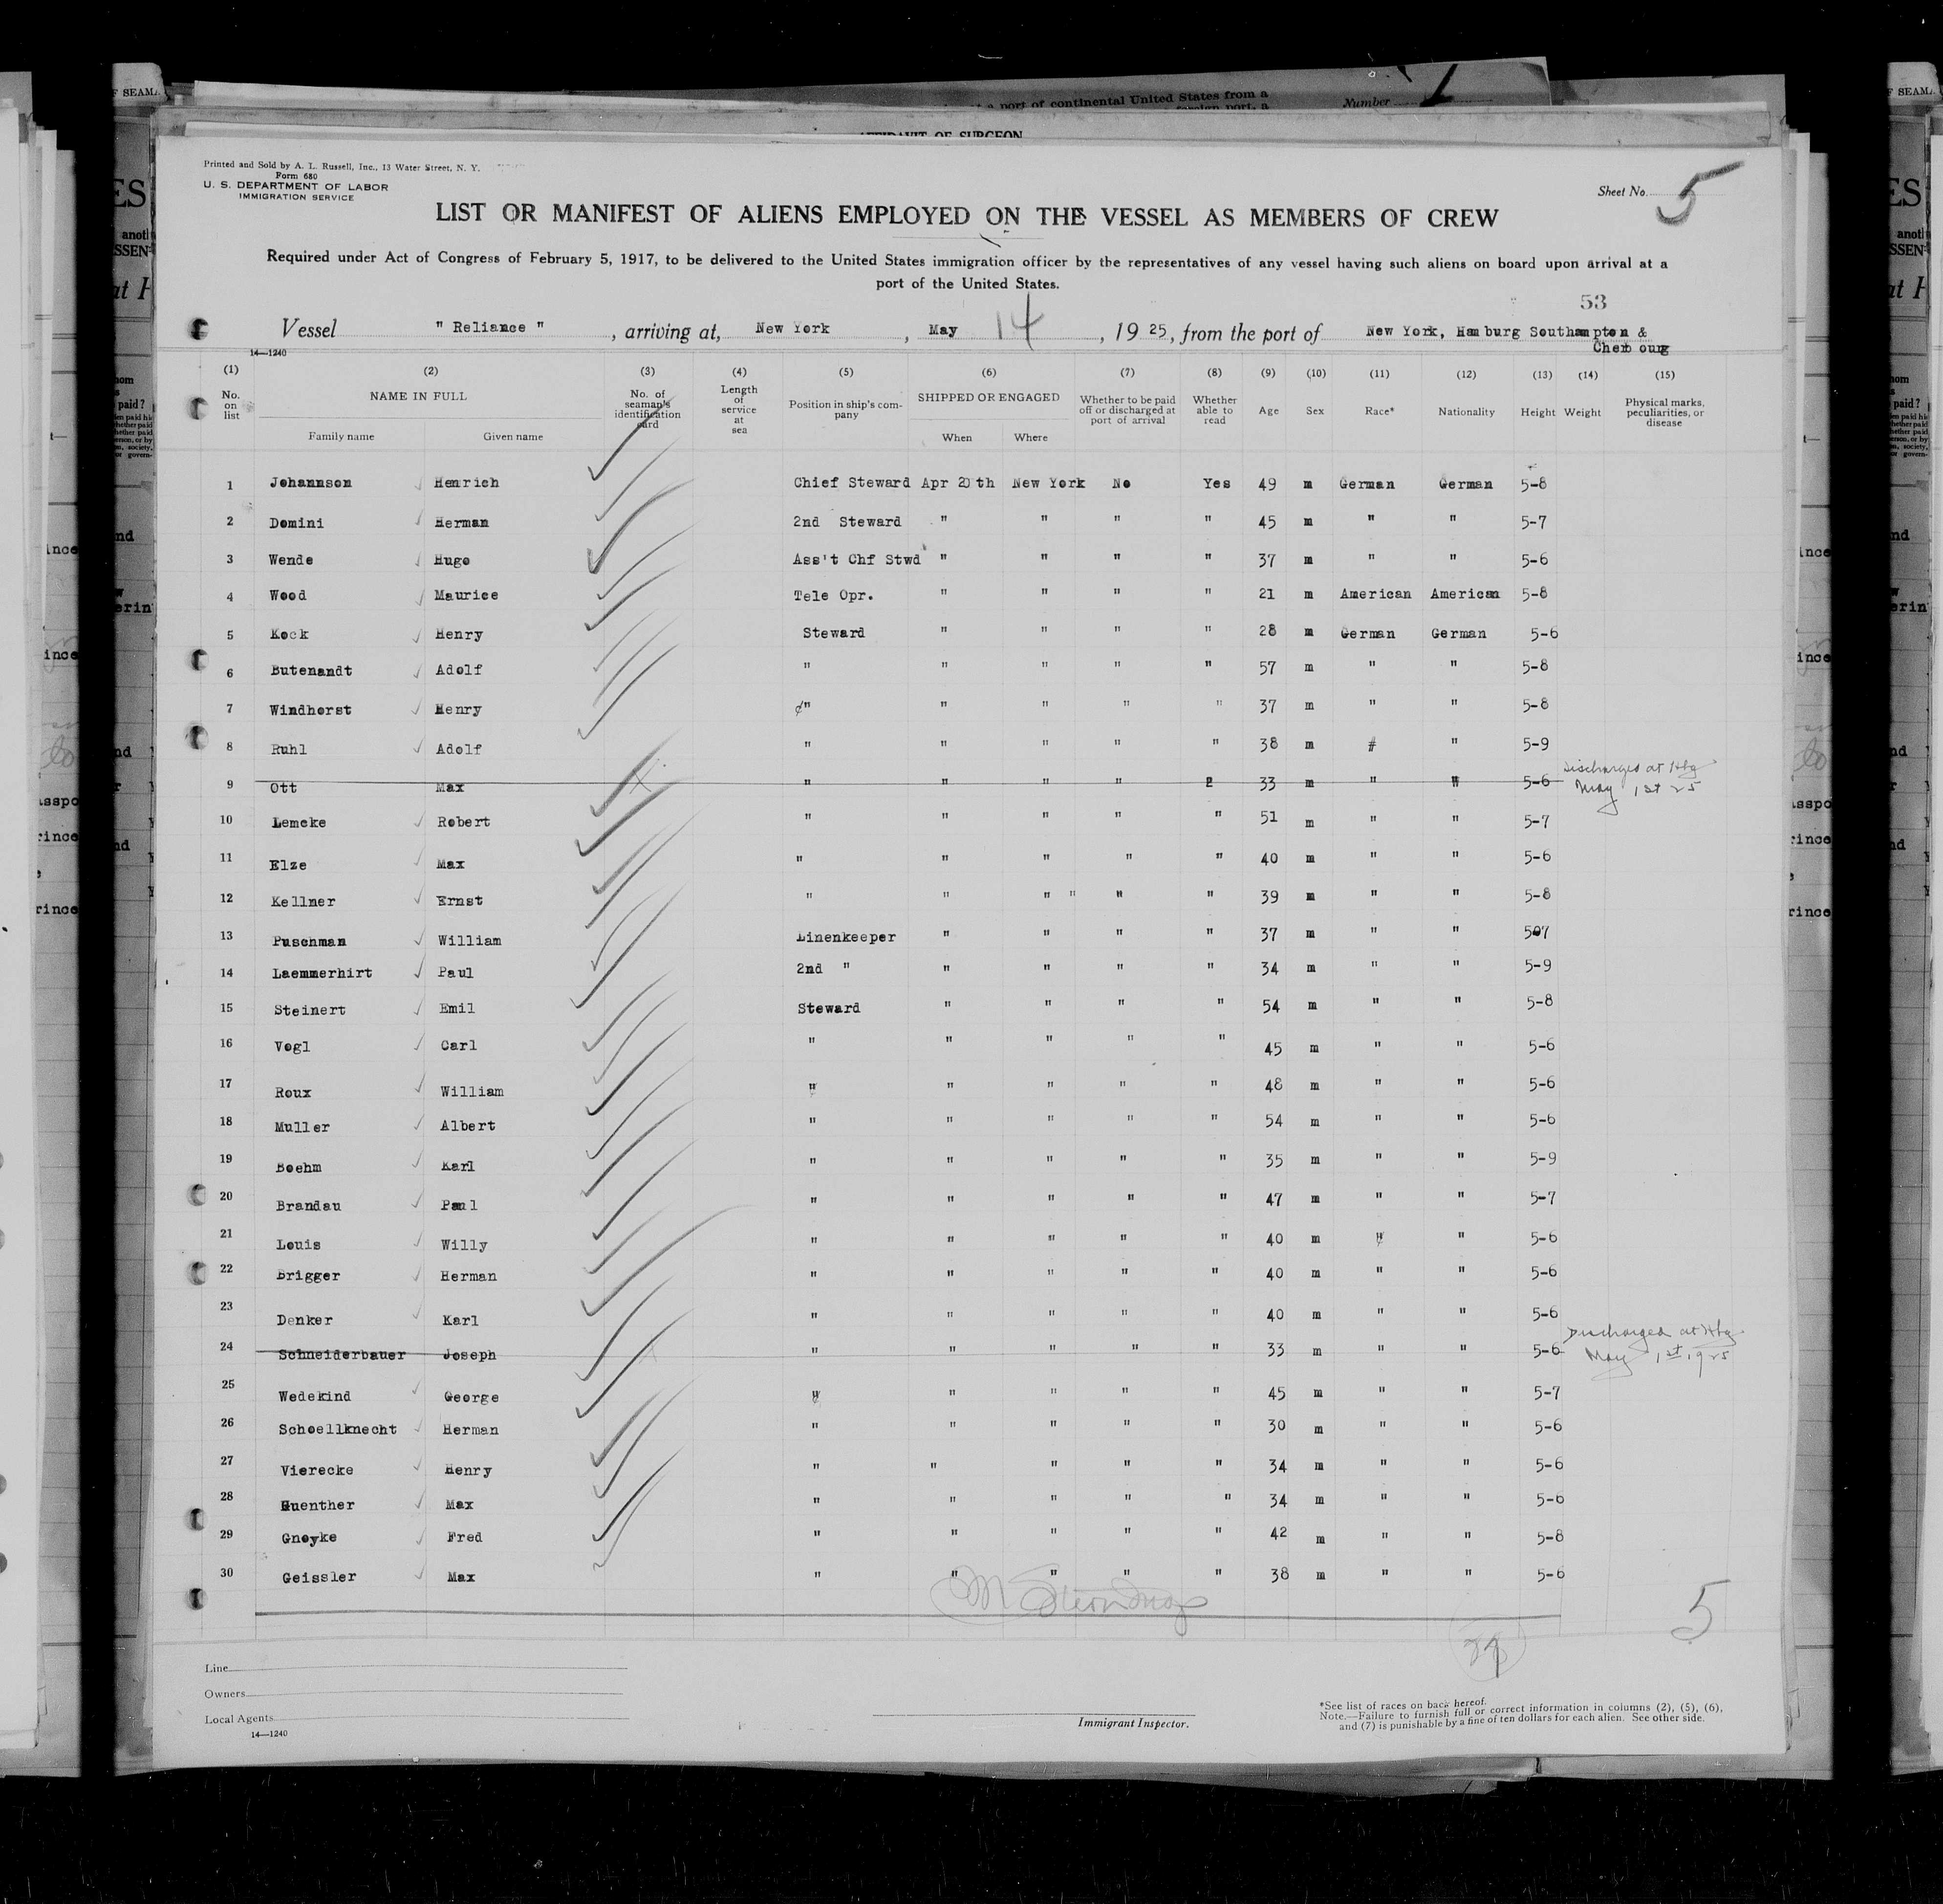 a port of continental United States from a
Number 1
AFFIDAVIT OF SURGEON
Printed and Sold by A. L. Russell, Inc., 13 Water Street, N. Y.
Form 680
U. S. DEPARTMENT OF LABOR
IMMIGRATION SERVICE
Sheet No. 5
LIST OR MANIFEST OF ALIENS EMPLOYED ON THE VESSEL AS MEMBERS OF CREW
Required under Act of Congress of February 5, 1917, to be delivered to the United States immigration officer by the representatives of any vessel having such aliens on board upon arrival at a
port of the United States.
53
Vessel " Reliance ", arriving at, New York, May 14, 1925, from the port of New York, Hamburg Southampton &
Cherbourg
14—1240
(1) (2) (3) (4) (5) (6) (7) (8) (9) (10) (11) (12) (13) (14) (15)
No. on list NAME IN FULL Family name Given name No. of seaman's identification card Length of service at sea Position in ship's company SHIPPED OR ENGAGED When Where Whether to be paid off or discharged at port of arrival Whether able to read Age Sex Race* Nationality Height Weight Physical marks, peculiarities, or disease
1 Johannson Henrich Chief Steward Apr 20th New York No Yes 49 m German German 5-8
2 Domini Herman 2nd Steward " " " " 45 m " " 5-7
3 Wende Hugo Ass't Chf Stwd " " " " 37 m " " 5-6
4 Wood Maurice Tele Opr. " " " " 21 m American American 5-8
5 Kock Henry Steward " " " " 28 m German German 5-6
6 Butenandt Adolf " " " " " 57 m " " 5-8
7 Windhorst Henry " " " " " 37 m " " 5-8
8 Ruhl Adolf " " " " " 38 m # " 5-9
9 Ott Max " " " " 2 33 m " " 5-6 Discharged at Hbg May 1st 25
10 Lemcke Robert " " " " " 51 m " " 5-7
11 Elze Max " " " " " 40 m " " 5-6
12 Kellner Ernst " " " " " " 39 m " " 5-8
13 Puschman William Linenkeeper " " " " 37 m " " 507
14 Laemmerhirt Paul 2nd " " " " " 34 m " " 5-9
15 Steinert Emil Steward " " " " 54 m " " 5-8
16 Vogl Carl " " " " " 45 m " " 5-6
17 Roux William " " " " " 48 m " " 5-6
18 Muller Albert " " " " " 54 m " " 5-6
19 Boehm Karl " " " " " 35 m " " 5-9
20 Brandau Paul " " " " " 47 m " " 5-7
21 Louis Willy " " " " " 40 m " " 5-6
22 Brigger Herman " " " " " 40 m " " 5-6
23 Denker Karl " " " " " 40 m " " 5-6
24 Schneiderbauer Joseph " " " " " 33 m " " 5-6 Discharged at Hbg May 1st 1925
25 Wedekind George " " " " " 45 m " " 5-7
26 Schoellknecht Herman " " " " " 30 m " " 5-6
27 Vierecke Henry " " " " " 34 m " " 5-6
28 Guenther Max " " " " " 34 m " " 5-6
29 Gneyke Fred " " " " " 42 m " " 5-8
30 Geissler Max " " " " " 38 m " " 5-6
5
Line
Owners
Local Agents
14—1240
Immigrant Inspector.
*See list of races on back hereof.
Note.—Failure to furnish full or correct information in columns (2), (5), (6),
and (7) is punishable by a fine of ten dollars for each alien. See other side.